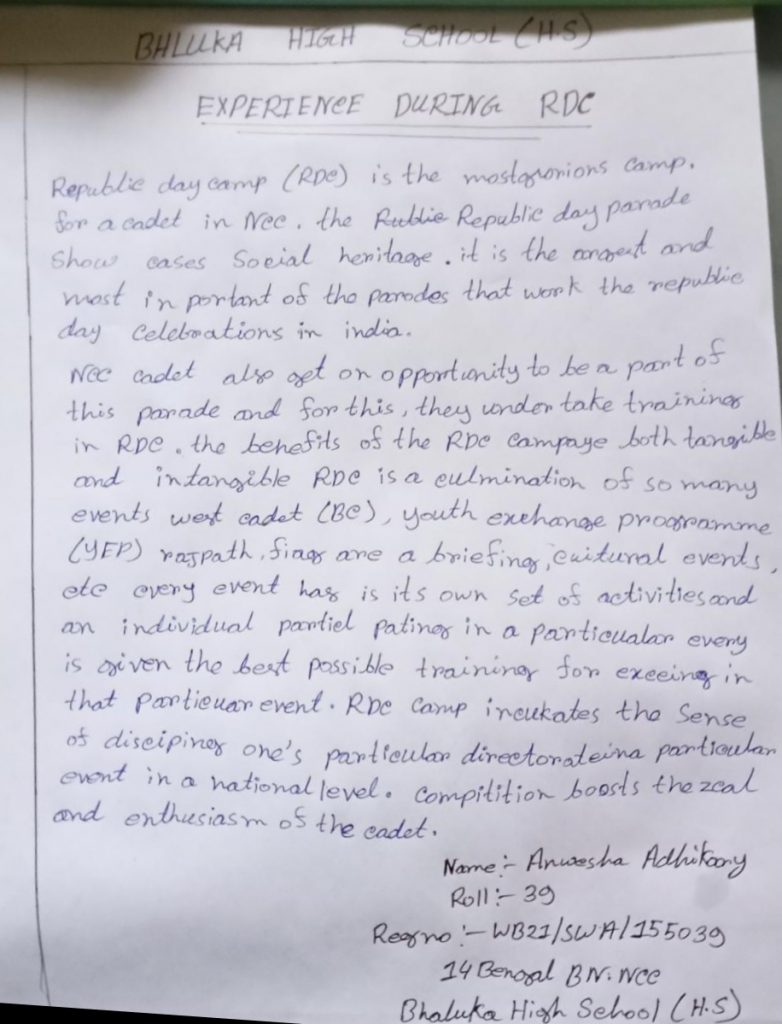 BHLUKA HIGH SCHOOL (H.S)
EXPERIENCE DURING RDC
Republic day camp (RDC) is the mostglorious camp.
for a cadet in Ncc. the Republic day parade
Show cases Social heritage. it is the and
most in portant of the parades that work the republic
day Celebrations in india.
Ncc cadet also get on opportunity to be a part of
this parade and for this, they under take training
in RDC. the benefits of the RDC campaye both tangible
and intangible RDC is a culmination of so many
events west cadet (BC), youth exchange programme
(YEP) rajpath, fiag are a briefing, cuitural events,
etc every event has is its own set of activities and
an individual partiel pating in a particualar every
is given the best possible training for exceeing in
that particuar event. RDC Camp incukates the Sense
of discipiney one's particular directorateina particular
event in a national level. Compitition boosts the zeal
and enthusiasm of the cadet.
Name:- Anwesha Adhikary
Roll:- 39
Regno:- WB21/SWA/155039
14 Bengal BN. Ncc
Bhaluka High School (H.S)